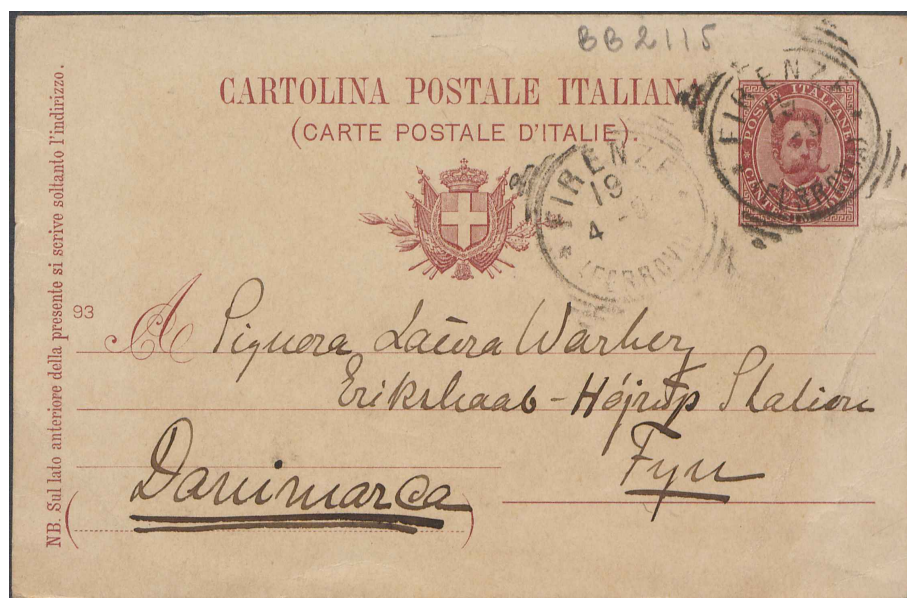 BB2115
CARTOLINA POSTALE ITALIANA
(CARTE POSTALE D'ITALIE).
POSTE ITALIANE
FIRENZE
19
(FERROVIA)
FIRENZE
19
4
(FERROVIA)
NB. Sul lato anteriore della presente si scrive soltanto l'indirizzo.
93
A Signora Laura Warberg
Erikshaab - Højrup Station
Fyn
Danimarca